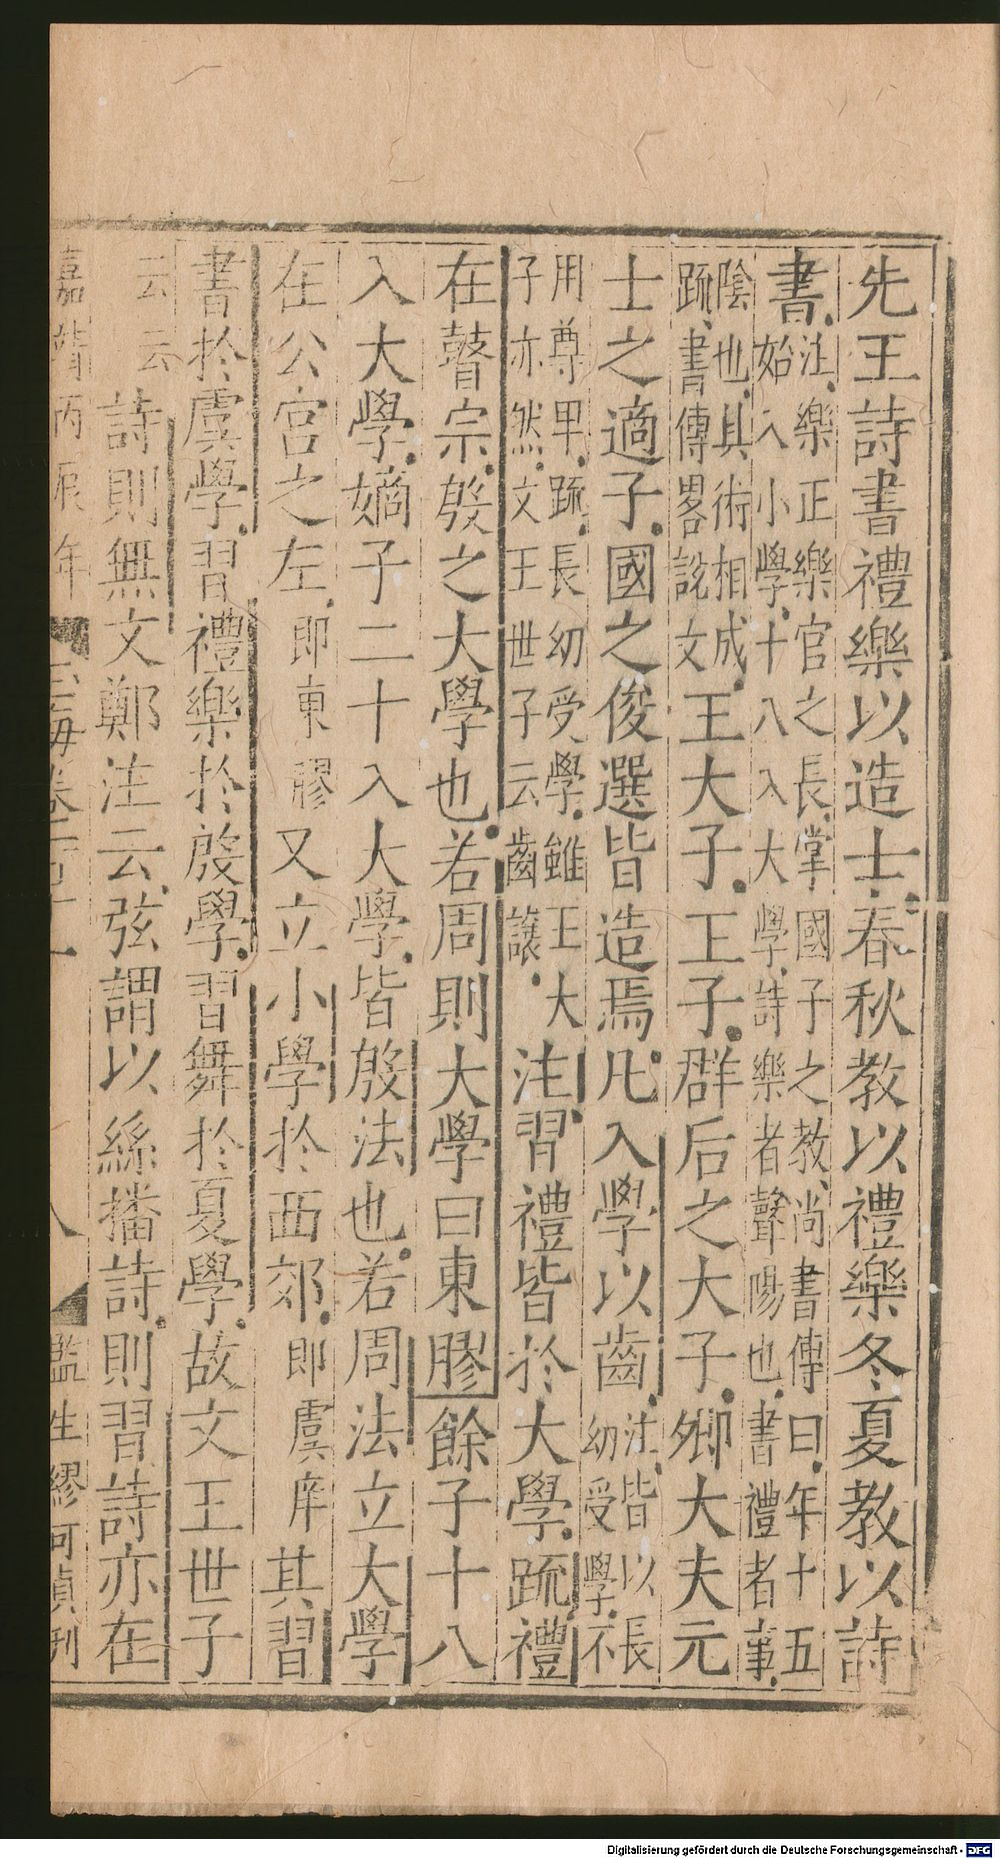 先王詩書禮樂以造士春秋教以禮樂冬夏教以詩
書注樂正樂官之長掌國子之教尚書傳曰年十五
始入小學十八入大學詩樂者聲陽也書禮者事
陰也其術相成
疏書傳畧説文王大子王子群后之大子卿大夫元
士之適子國之俊選皆造焉凡入學以齒注皆以長
幼受學不
用尊卑疏長幼受學雖王大
子亦然文王世子云齒讓注習禮皆於大學疏禮
在瞽宗殷之大學也若周則大學曰東膠餘子十八
入大學嫡子二十入大學皆殷法也若周法立大學
在公宫之左即東膠又立小學於西郊即虞庠其習
書於虞學習禮樂於殷學習舞於夏學故文王世子
云云詩則無文鄭注云弦謂以絲播詩則習詩亦在
嘉靖丙辰年
八
監生繆可貞刊
Digitalisierung gefördert durch die Deutsche Forschungsgemeinschaft - DFG